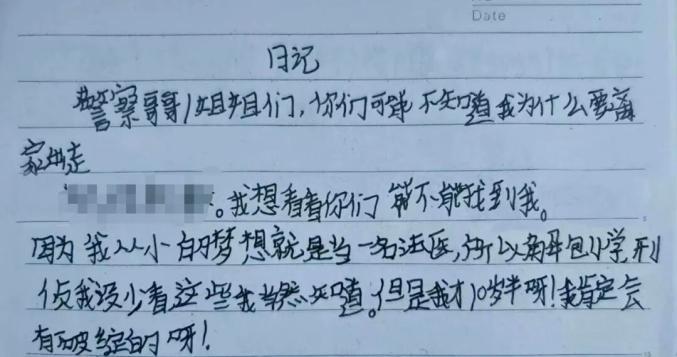 Date
日记
警察哥哥/姐姐们，你们可能不知道我为什么要离
家出走
。我想看看你们能不能找到我。
因为我从小的梦想就是当一名法医，所以包小学刑
侦我没少看这些我当然知道。但是我才10岁半呀！我肯定会
有破绽的呀！